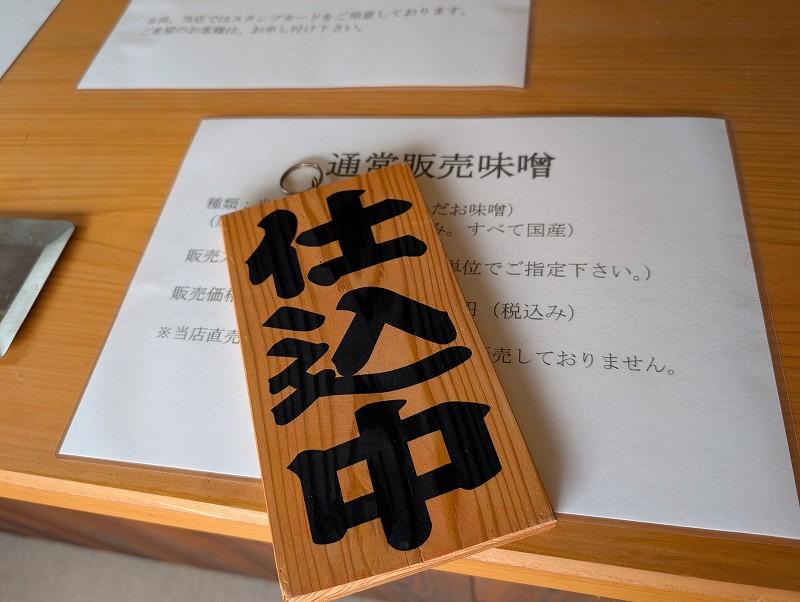 ※尚、当店ではスタンプカードをご用意しております。
ご希望のお客様は、お申し付け下さい。
通常販売味噌
種類：
だお味噌）
み。すべて国産）
販売
単位でご指定下さい。）
販売価格
円（税込み）
※当店直売
販売しておりません。
仕込中